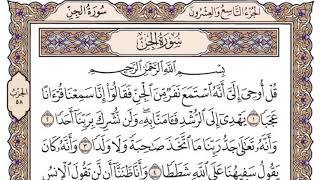 سُورَةُ الجِنّ
الجُزْءُ التَّاسِعُ وَالعِشْرُونَ
سُورَةُ الجِنِّ
بِسْمِ اللَّهِ الرَّحْمَٰنِ الرَّحِيمِ
قُلْ أُوحِيَ إِلَيَّ أَنَّهُ ٱسْتَمَعَ نَفَرٌ مِّنَ ٱلْجِنِّ فَقَالُوٓاْ إِنَّا سَمِعْنَا قُرْءَانًا
عَجَبًا ١ يَهْدِيٓ إِلَى ٱلرُّشْدِ فَـَٔامَنَّا بِهِۦ وَلَن نُّشْرِكَ بِرَبِّنَآ أَحَدًا ٢
وَأَنَّهُۥ تَعَٰلَىٰ جَدُّ رَبِّنَا مَا ٱتَّخَذَ صَٰحِبَةً وَلَا وَلَدًا ٣ وَأَنَّهُۥ كَانَ
يَقُولُ سَفِيهُنَا عَلَى ٱللَّهِ شَطَطًا ٤ وَأَنَّا ظَنَنَّآ أَن لَّن تَقُولَ ٱلْإِنسُ
الحِزْب
٥٨